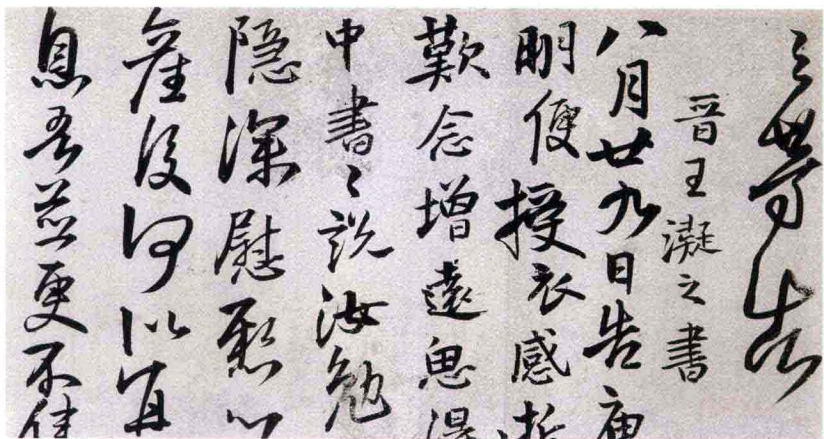 晉王凝之書
八月廿九日告庾
明便授衣感逝
歎念增遠思得
中書々說汝勉
隱深慰懸心
產後何以宜
息吾並更不佳